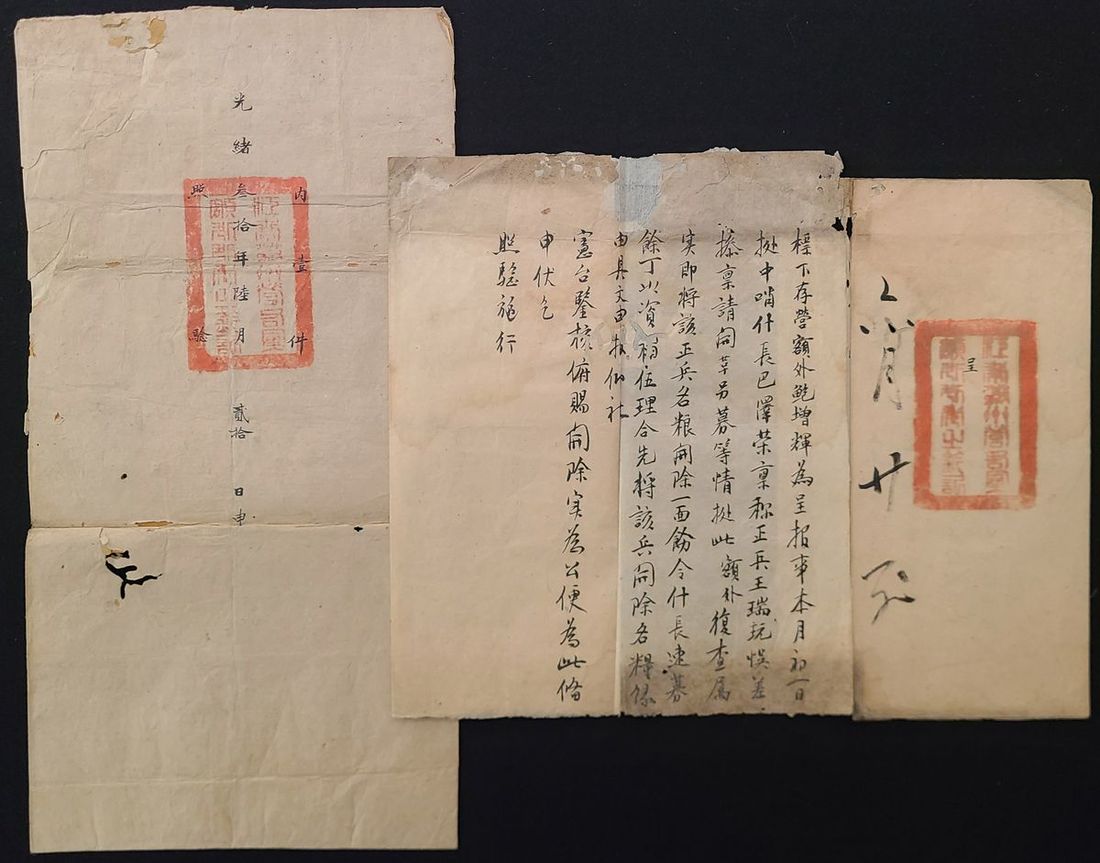 呈
六月廿
標下存營額外鮑增輝為呈報事本月初一日
據中哨什長巴澤荣稟称正兵王瑞玩悞差
操稟請開革另募等情據此額外復查属
实即將該正兵名粮開除一面飭令什長速募
餘丁以資補伍理合先将該兵開除名糧緣
由具文申報仰祈
憲台鑒核俯賜開除实為公便為此俻
申伏乞
照驗施行
內壹件
光緒叁拾年陸月貳拾日申
照驗